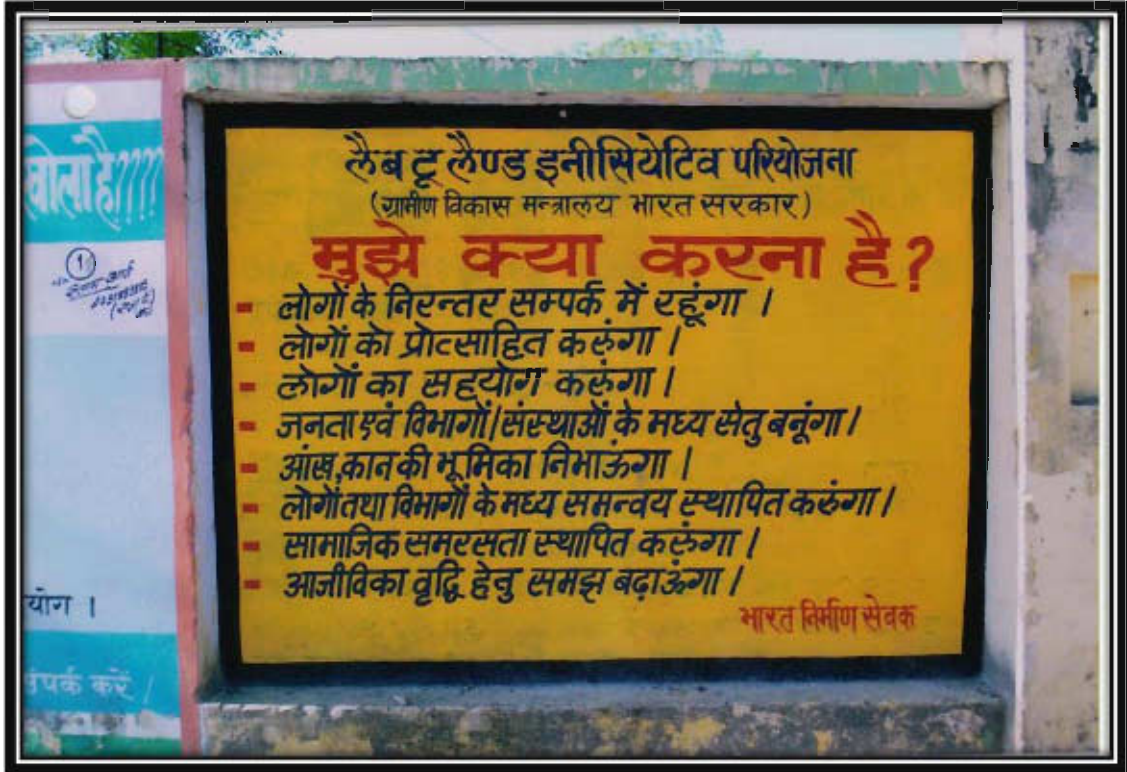 लैब टू लैण्ड इनीसियेटिव परियोजना
(ग्रामीण विकास मन्त्रालय भारत सरकार)
मुझे क्या करना है?
- लोगों के निरन्तर सम्पर्क में रहूंगा ।
- लोगों को प्रोत्साहित करुंगा ।
- लोगों का सहयोग करुंगा ।
- जनता एवं विभागों/संस्थाओं के मध्य सेतु बनूंगा ।
- आंख,कान की भूमिका निभाऊंगा ।
- लोगों तथा विभागों के मध्य समन्वय स्थापित करुंगा ।
- सामाजिक समरसता स्थापित करुंगा ।
- आजीविका वृद्धि हेतु समझ बढ़ाऊंगा ।
भारत निर्माण सेवक
1
योग ।
संपर्क करें